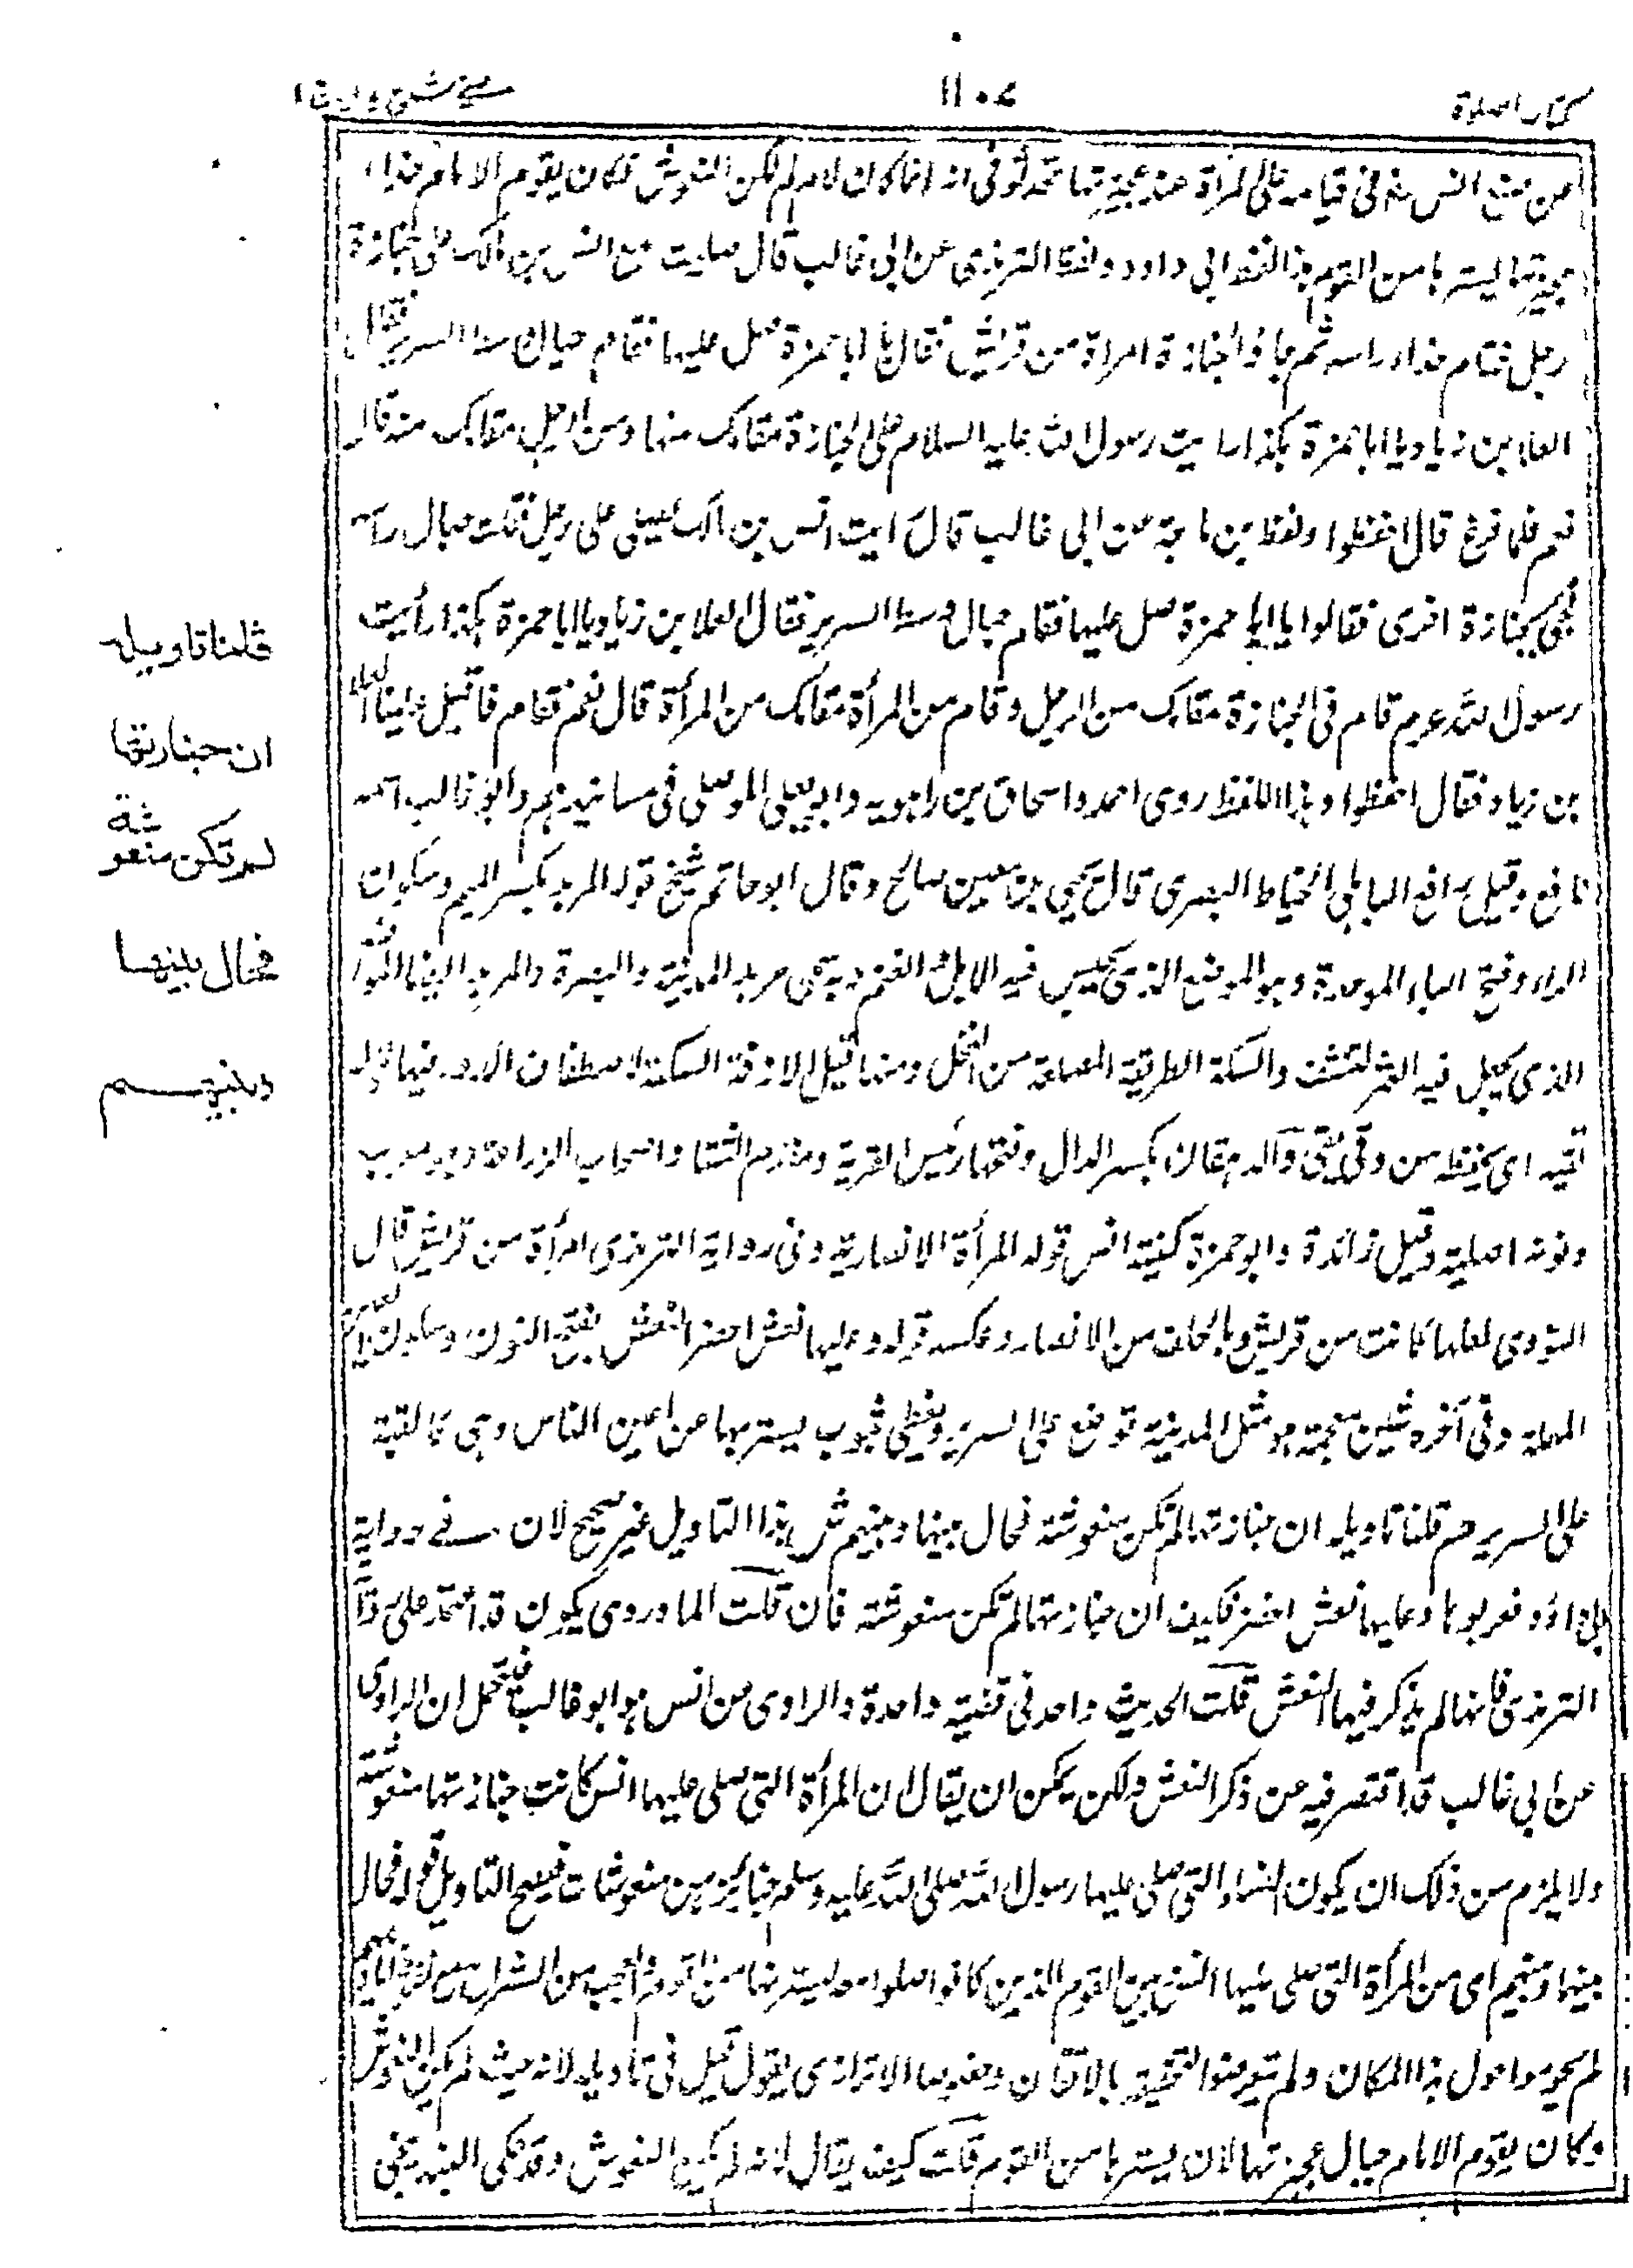 كتاب الصلاة
١١٠٤
من صنع انس رضـ في قيامه على المرأة عند عجيزتها فحدثوني انه انما كان لانه لم تكن النعوش فكان يقوم الامام حذاء
عجيزتها يسترها من القوم هذا لفظ ابي داود ولفظ الترمذي عن ابي غالب قال صليت مع انس بن مالك على جنازة
رجل فقام حذاء راسه ثم جاؤا بجنازة امرأة من قريش فقالوا يا ابا حمزة صل عليها فقام حيال وسط السرير فقال
العلاء بن زياد يا ابا حمزة هكذا رايت رسول الله عليه السلام على الجنازة مقامك منها ومن الرجل مقامك منه قال
نعم فلما فرغ قال احفظوا ولفظ بن ماجة عن ابي غالب قال رايت انس بن مالك يصلي على رجل فقام حيال راسه
فجئ بجنازة اخرى فقالوا يا ابا حمزة صل عليها فقام حيال وسط السرير فقال العلا بن زياد يا ابا حمزة هكذا رأيت
رسول الله عرم قام في الجنازة مقامك من الرجل وقام من المرأة مقامك من المرأة قال نعم فقام فاقبل علينا العلاء
بن زياد فقال احفظوا وبهذا اللفظ روى احمد واسحاق بن راهويه وابو يعلى الموصلي في مسانيدهم وابو غالب اسمه
نافع وقيل رافع الباهلي الخياط البصري قال يحيى بن معين صالح وقال ابو حاتم شيخ قوله المربد بكسر الميم وسكون
الراء وفتح الباء الموحدة وهو الموضع الذي يحبس فيه الابل والغنم وبه سمى مربد المدينة والبصرة والمربد ايضا الموضع
الذي يجعل فيه التمر لتنشف والسكة الطريقة المصطفة من النخل ومنها قيل الازقة السكة لاصطفاف الدور فيها قوله
تقيه اى يحفظه من وقى يقى والدهقان بكسر الدال وضمها رئيس القرية ومقدم التناء واصحاب الزراعة وهو معرب
ونونه اصلية وقيل زائدة وابو حمزة كنية انس قوله المرأة الانصارية وفي رواية الترمذي امرأة من قريش قال
النووي لعلها كانت من قريش وبالحلف من الانصار وعكسه قوله وعليها نعش اخضر النعش بفتح النون وسكون العين
المهملة وفي آخره شين معجمة هو مثل المدينة توضع على السرير ويغطى بثوب يسترها عن اعين الناس وهي كالقبة
على السرير صـ قلنا تاويله ان جنازتها لم تكن منعوشة فحال بينها وبينهم شـ هذا التاويل غير صحيح لان في رواية
ابي داؤد فقربوها وعليها نعش اخضر فكيف ان جنازتها لم تكن منعوشة فان قلت الماوردي يكون قد اعتمد على رواية
الترمذي فانها لم يذكر فيها النعش قلت الحديث واحد في قضية واحدة والراوي من انس هو ابو غالب فيحتمل ان الراوي
عن ابي غالب قد اقتصر فيه عن ذكر النعش ولكن يمكن ان يقال ان المرأة التي صلى عليها انس كانت جنازتها منعوشة
ولا يلزم من ذلك ان يكون النساء التي صلى عليها رسول الله صلى الله عليه وسلم جنائزهن منعوشات فيصح التاويل قوله فحال
بينها وبينهم اى من المرأة التي صلى عليها انس وبين القوم الذين كانوا صلوا معه ليسترها من القوم والعجب من الشراح
لم يحوموا حول هذا المكان ولم يتعرضوا لتحقيق بالاتقان وبعضهم الاترازي يقول قيل في تأويله لانه حيث لم يكن النعوش
وكان يقوم الامام حيال عجيزتها لان يسترها من القوم قلت كيف يقال لانه لم تكن النعوش وقد حكى البندنيجي
قلنا تاويله
ان جنازتها
لم تكن منعوشة
فحال بينها
وبينهم